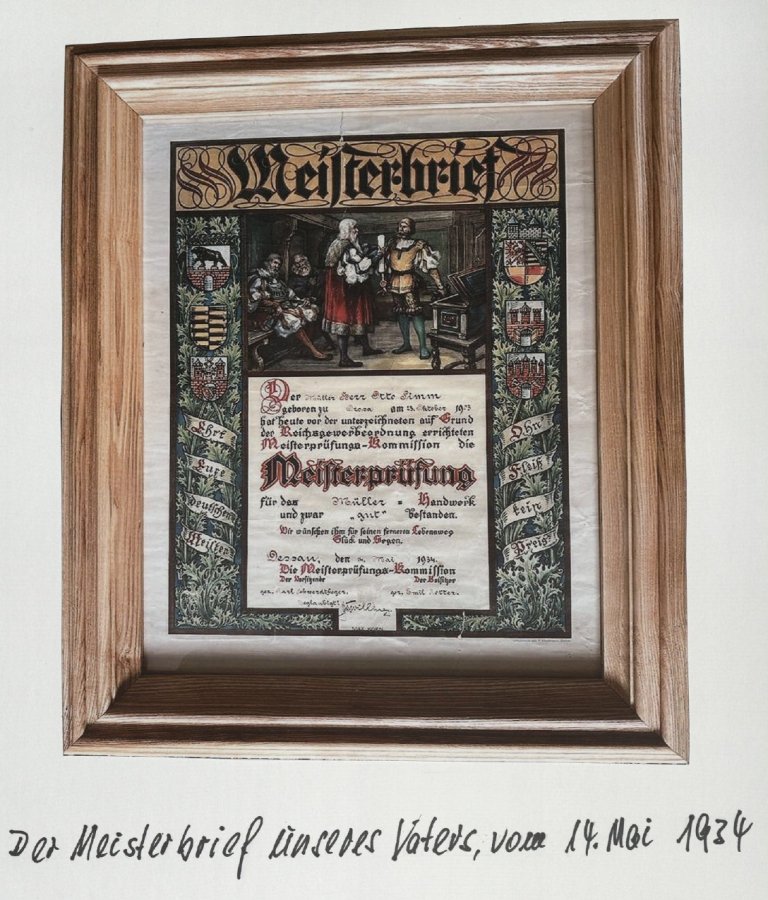 Meisterbrief
Der Müller Herr Otto
geboren zu am 13. Oktober 1903
hat heute vor der unterzeichneten auf Grund
der Reichsgewerbeordnung errichteten
Meisterprüfungs-Kommission die
Meisterprüfung
für das Müller = Handwerk
und zwar "gut" bestanden.
Wir wünschen ihm für seinen ferneren Lebensweg
Glück und Segen.
Dessau, den 14. Mai 1934.
Die Meisterprüfungs-Kommission
Der Vorsitzende Der Beisitzer
gez. Karl Schwerdtfeger. gez. Emil
Beglaubigt:
Ehrt
Eure
deutschen
Meister
Ohn'
Fleiß
kein
Preis
Der Meisterbrief unseres Vaters, vom 14. Mai 1934